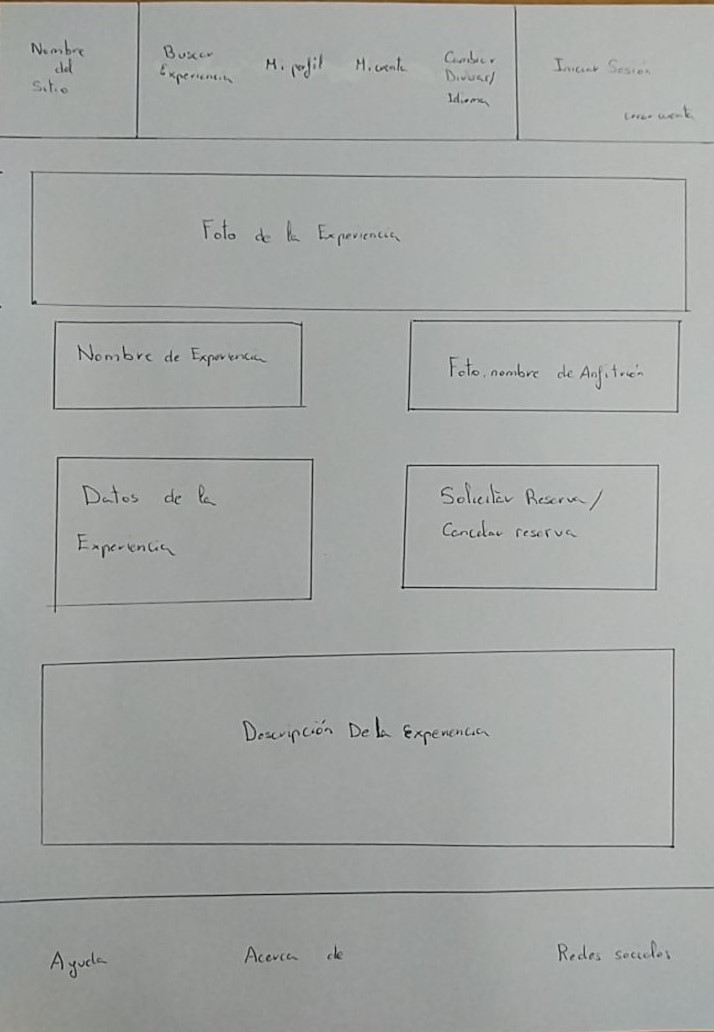 Nombre
del
Sitio
Buscar
Experiencia
Mi perfil
Mi cuenta
Cambiar
Divisas/
Idioma
Iniciar Sesión
cerrar cuenta
Foto de la Experiencia
Nombre de Experiencia
Foto, nombre de Anfitrión
Datos de la
Experiencia
Solicitar Reserva/
Cancelar reserva
Descripción De la Experiencia
Ayuda
Acerca de
Redes sociales